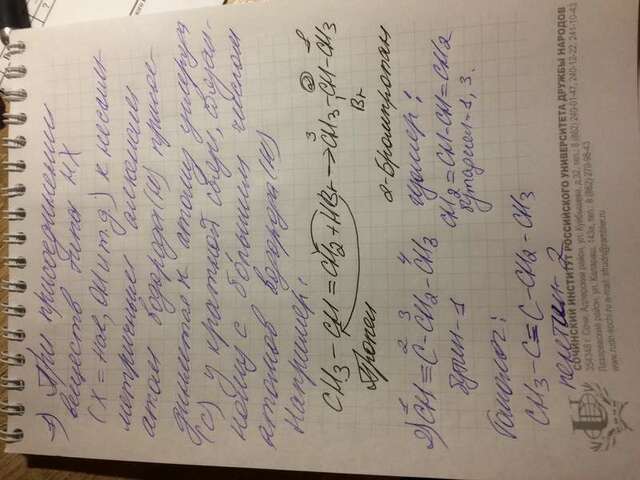 1) При присоединении
веществ типа HX
(X = Hal, OH и т.д.) к несим-
метричным алкенам
атом водорода (H) присое-
диняется к атому углерода
(C) у кратной связи, связан-
ному с бо́льшим числом
атомов водорода (H)
Например:
CH3 – CH = CH2 + HBr → CH3 – CH – CH3
3 2 1
Br
Пропен
2-Бромпропан
2) CH ≡ C – CH2 – CH3
1 2 3 4
бутин-1
изомер:
CH2 = CH – CH = CH2
бутадиен-1,3.
Гомолог:
CH3 – C ≡ C – CH2 – CH3
пентин-2
СОЧИНСКИЙ ИНСТИТУТ РОССИЙСКОГО УНИВЕРСИТЕТА ДРУЖБЫ НАРОДОВ
354348 г. Сочи, Адлерский район, ул. Куйбышева, д.32, тел.: 8 (862) 240-01-47, 240-12-22, 241-10-43
Лазаревский район, ул. Калараш, 143а, тел.: 8 (862) 270-98-43
www.rudn-sochi.ru e-mail: sfrudn@rambler.ru